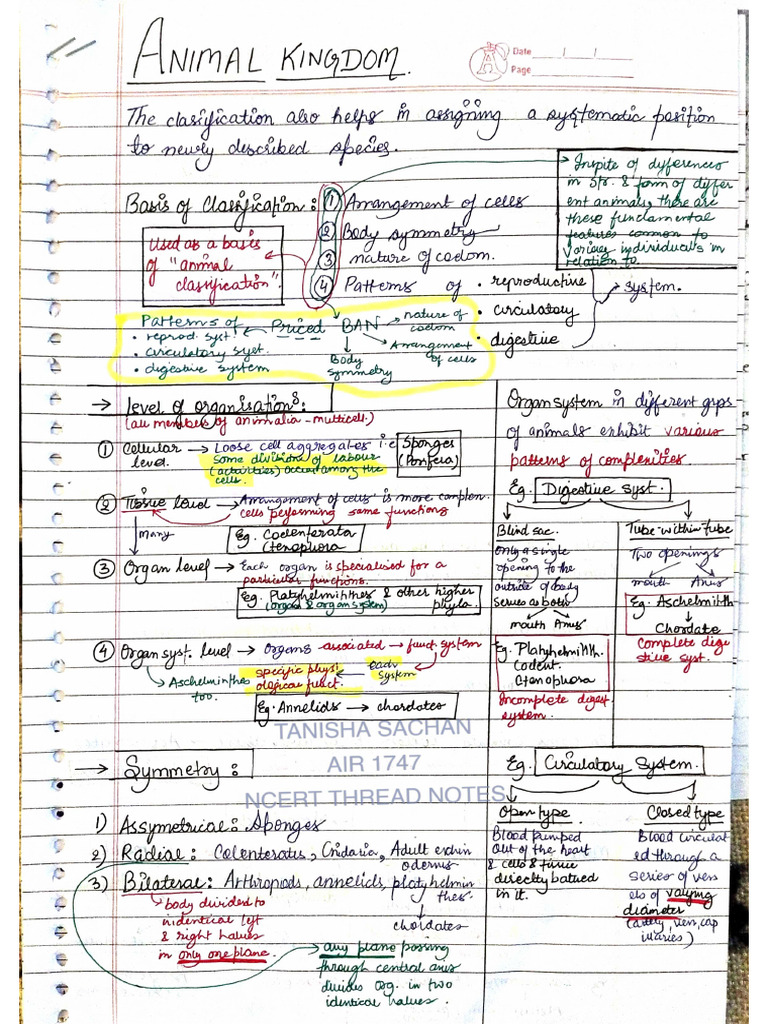 ANIMAL KINGDOM.
Date / /
Page
The classification also helps in assigning a systematic position
to newly described species.
Basis of Classification: ① Arrangement of cells
② Body symmetry
③ nature of coelom.
④ Patterns of • reproductive
• circulatory
• digestive
system.
Used as a basis
of "animal
classification".
Inspite of differences
in str. & form of differ
ent animals, there are
these fundamental
features common to
various individuals in
relation to.
Patterns of
• reprod. syst.
• circulatory syst.
• digestive system
Priced BAN
nature of
coelom
Arrangement
of cells
Body
symmetry
→ Level of organisations:
(all members of animalia - multicell.)
① Cellular
level.
→ Loose cell aggregates i.e
Sponges
(Porifera)
Some divisions of labour
(activities) occurs among the
cells.
② Tissue level → Arrangement of cells is more complex.
cells performing same functions
many
Eg. Coelenterata
Ctenophora
③ Organ level → Each organ is specialised for a
particular functions.
Eg. Platyhelminthes & other higher
(organ & organ system) phyla.
④ Organ syst. level → Organs associated → funct. system
each
system
specific physi
ological funct.
→ Aschelminthes
too.
Eg. Annelids → chordates
Organ system in different grps
of animals exhibit various
patterns of complexities.
Eg. Digestive syst.
Blind sac.
Only a single
opening to the
outside of body
serves as both
mouth Anus
Eg. Platyhelminth.
Coelent.
Ctenophora
Incomplete digest.
system.
Tube within tube
Two openings
mouth Anus
Eg. Aschelminth
→ Chordate
Complete dige
stive syst.
TANISHA SACHAN
AIR 1747
NCERT THREAD NOTES
→ Symmetry:
1) Assymetrical: Sponges
2) Radial: Coelenterates, Cnidaria, Adult echin
odermis
3) Bilateral: Arthropods, annelids, platyhelmin
thes.
→ body divided to
identical left
& right halves
in only one plane.
chordates
any plane passing
through central axis
divides org. in two
identical halves.
Eg. Circulatory System.
Open type
Blood pumped
out of the heart
& cells & tissue
directly bathed
in it.
Closed type
Blood circulat
ed through a
series of vess
els of varying
diameter
(artery, vein, cap
illaries)